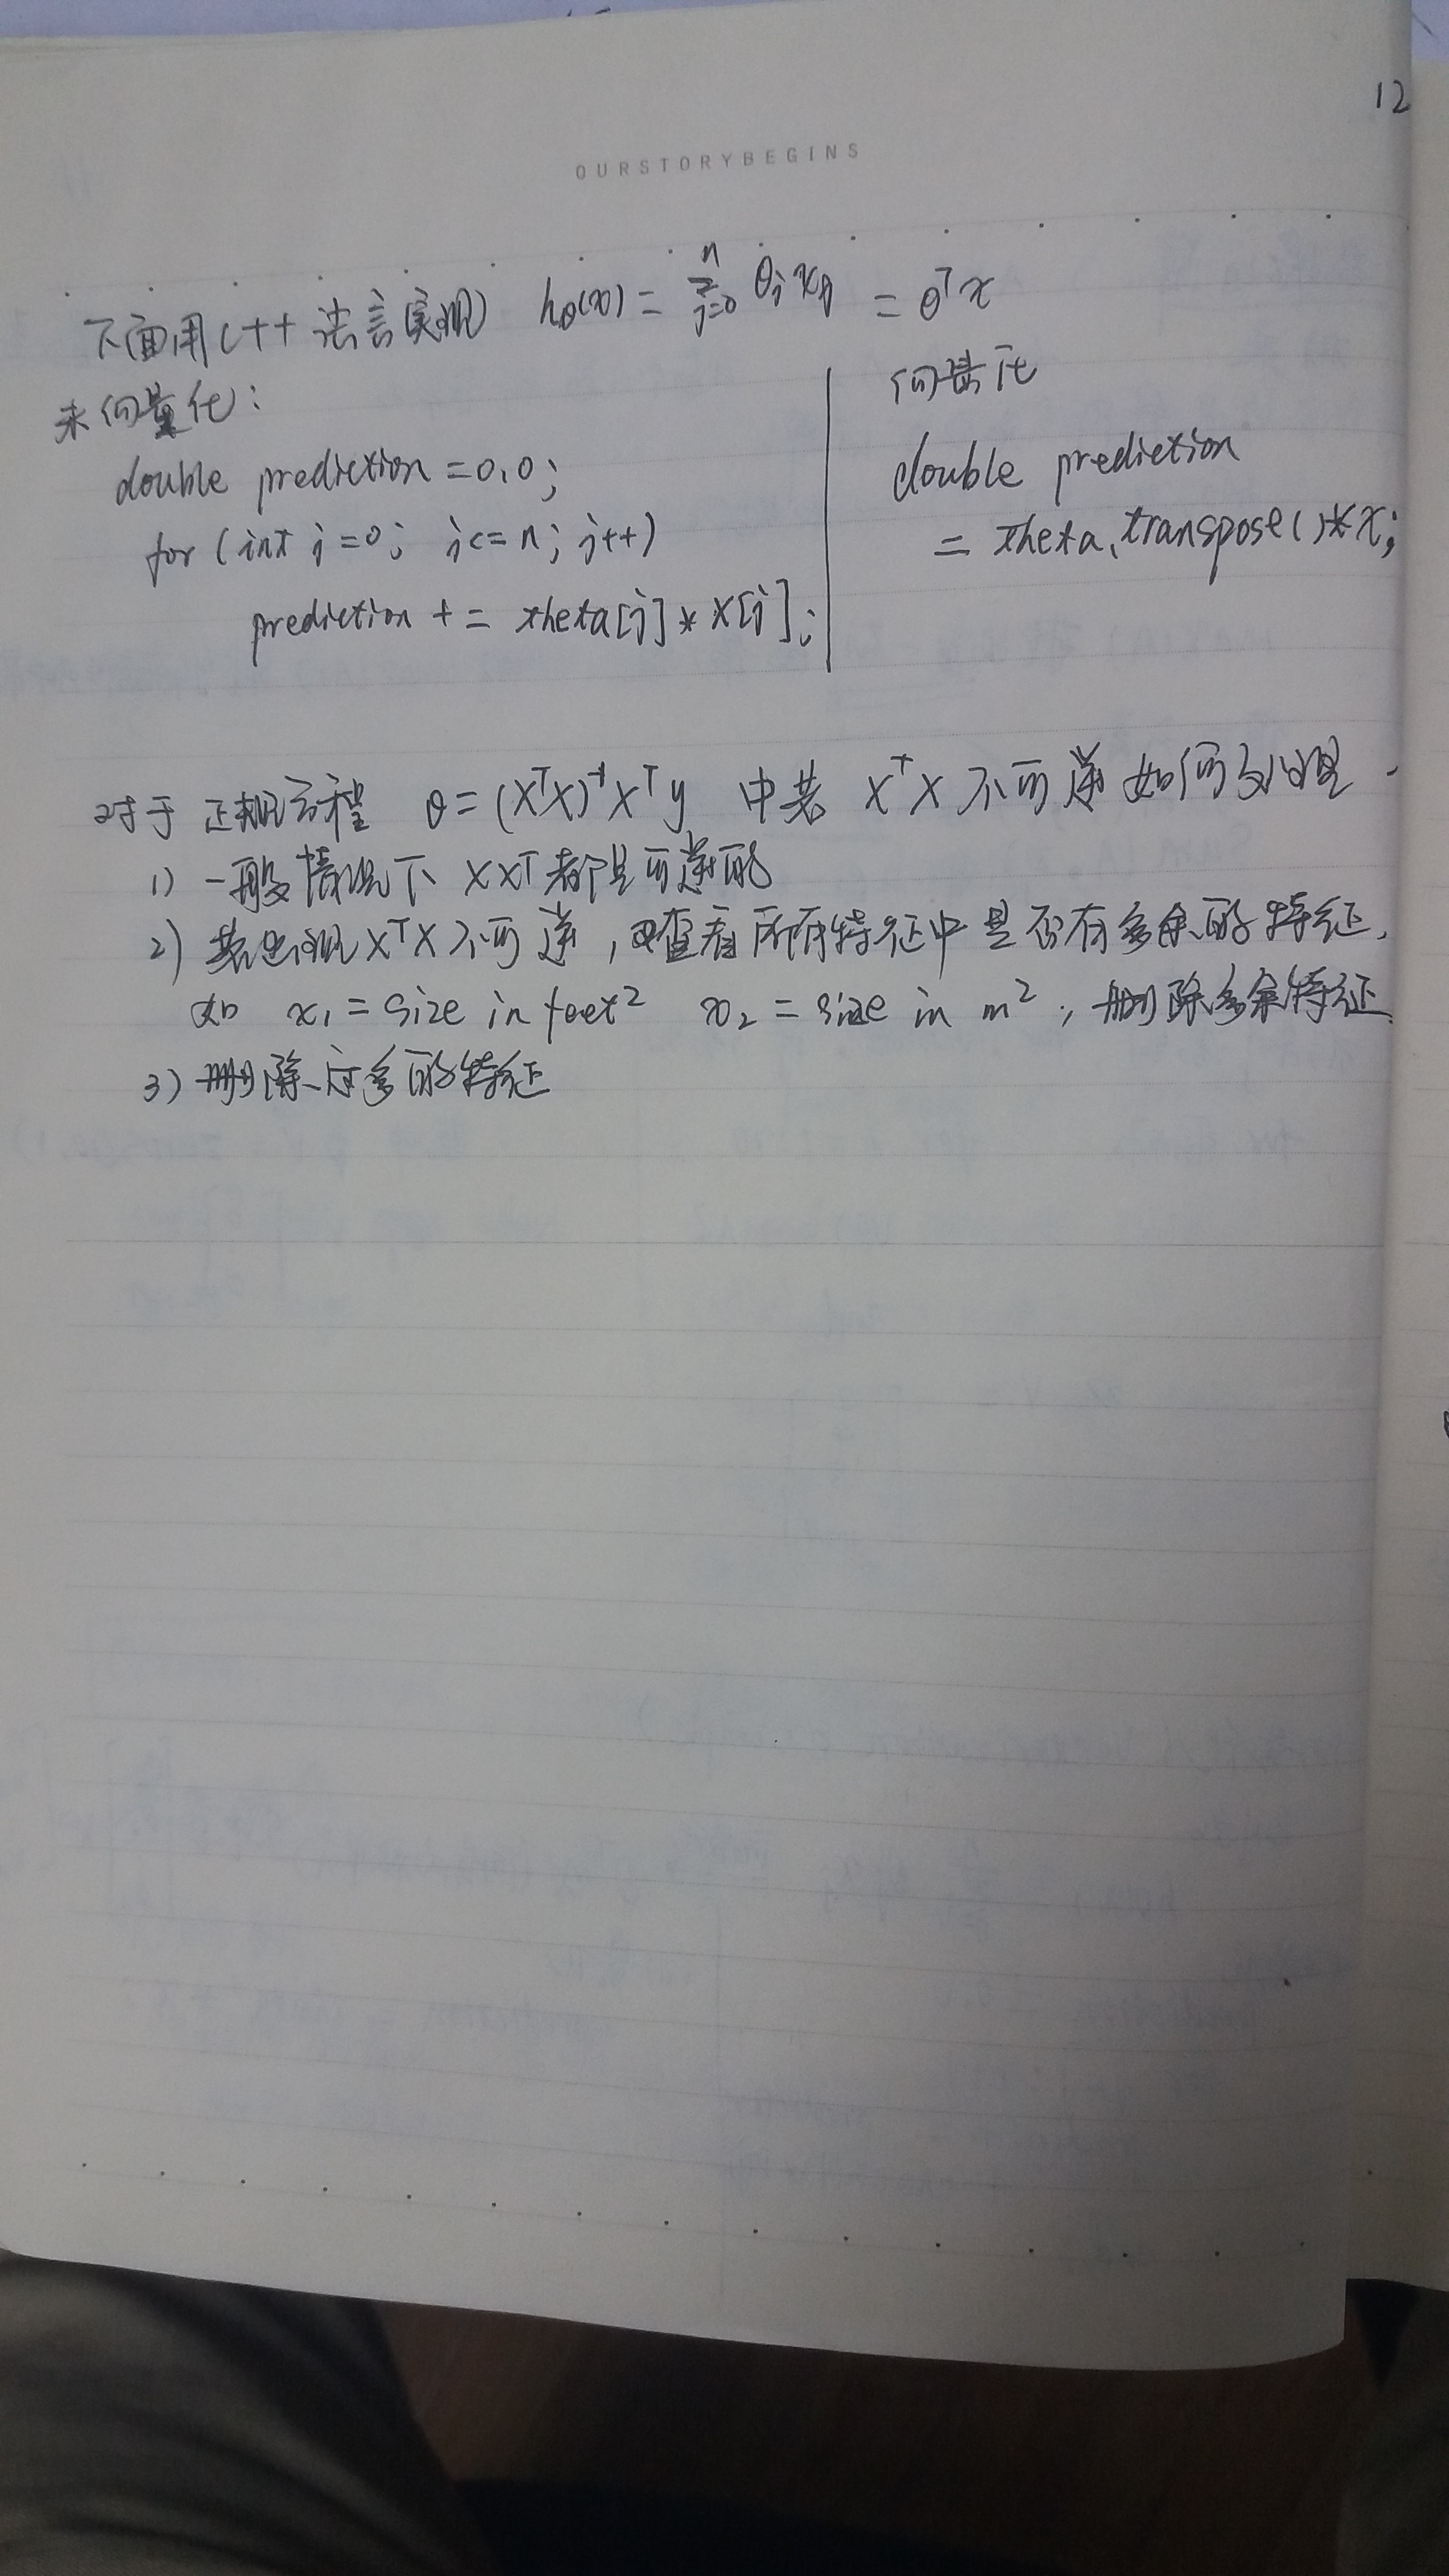 12
OURSTORYBEGINS
下面用C++语言实现 hθ(x) = Σⁿⱼ₌₀ θⱼxⱼ = θᵀx
未向量化:
double prediction = 0.0;
for (int j=0; j<=n; j++)
prediction += theta[j] * x[j];
向量化
double prediction
= theta.transpose()*x;
对于正规方程 θ = (XᵀX)⁻¹Xᵀy 中若 XᵀX 不可逆如何处理.
1) 一般情况下 XXᵀ都是可逆的
2) 若出现XᵀX不可逆, 查看所有特征中是否有多余的特征,
如 x₁ = size in feet² x₂ = size in m², 删除多余特征.
3) 删除过多的特征